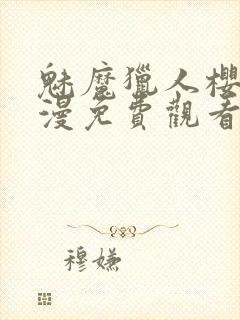 魅魔獵人櫻
漫免費觀看
穆嫌